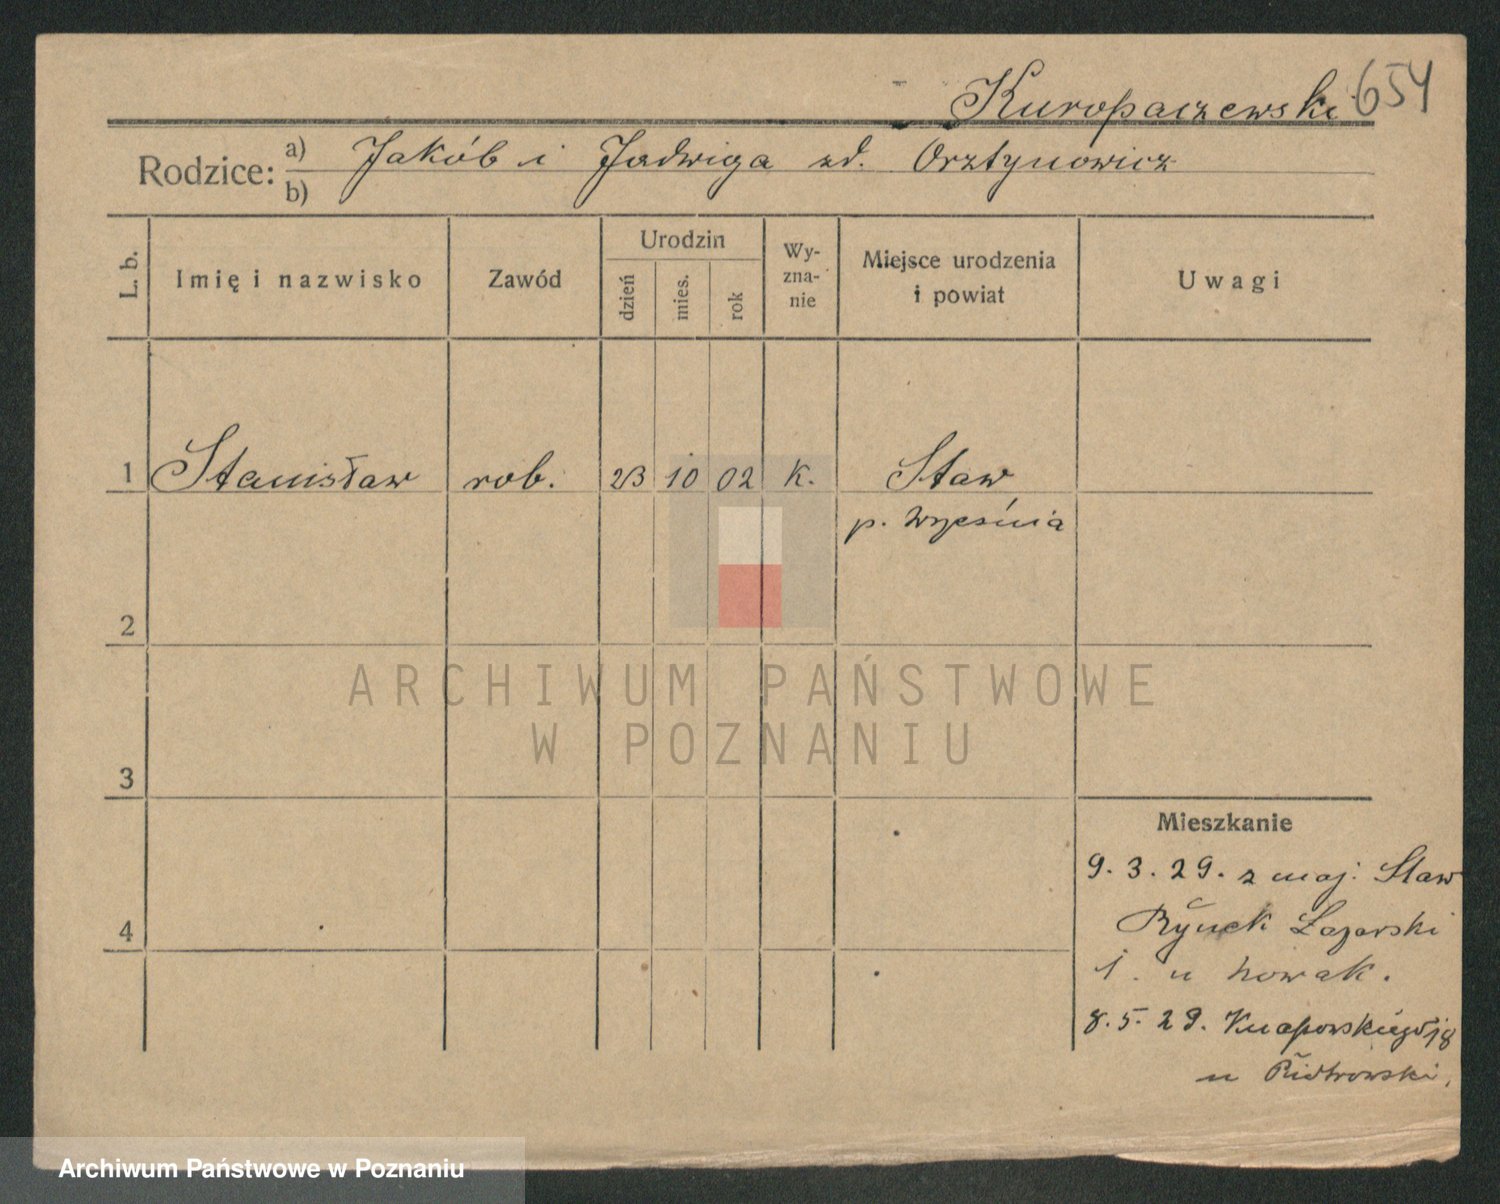 Kuropaczewski 654
Rodzice: a) Jakób i Jadwiga zd. Orztynowicz
b)
L. b. Imię i nazwisko Zawód Urodzin dzień mies. rok Wy-zna-nie Miejsce urodzenia i powiat Uwagi
1 Stanisław rob. 23 10 02 K. Staw
p. Września
2
ARCHIWUM PAŃSTWOWE
W POZNANIU
3
Mieszkanie
9. 3. 29. z maj. Staw
4
Rynek Łazarski
1. u Nowak.
8. 5. 29. Knapowskiego 18
u Piotrowski.
Archiwum Państwowe w Poznaniu